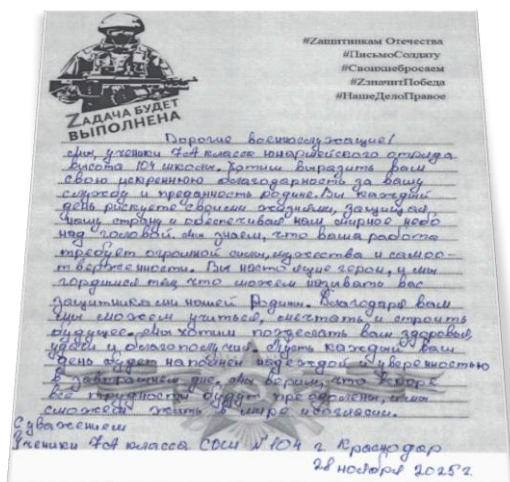 #Zащитникам Отечества
#ПисьмоСолдату
#Своихнебросаем
#ZзначитПобеда
#НашеДелоПравое
ZАДАЧА БУДЕТ
ВЫПОЛНЕНА
Дорогие военнослужащие!
Мы, ученики 7А класса юнармейского отряда
высота 104 школы. Хотим выразить вам
свою искреннюю благодарность за вашу
службу и преданность родине. Вы каждый
день рискуете своими жизнями, защищая
нашу страну и обеспечивая нам мирное небо
над головой. Мы знаем, что ваша работа
требует огромной силы, мужества и самоо-
тверженности. Вы настоящие герои, и мы
гордимся тем, что можем называть вас
защитниками нашей Родины. Благодаря вам
мы сможем учиться, мечтать и строить
будущее. Мы хотим пожелать вам здоровья,
удачи и благополучия. Пусть каждый ваш
день будет наполнен надеждой и уверенностью
в завтрашнем дне. Мы верим, что вскоре
все трудности будут преодолены, и мы
сможем жить в мире и согласии.
С уважением
Ученики 7А класса СОШ №104 г. Краснодар
28 ноября 2025 г.